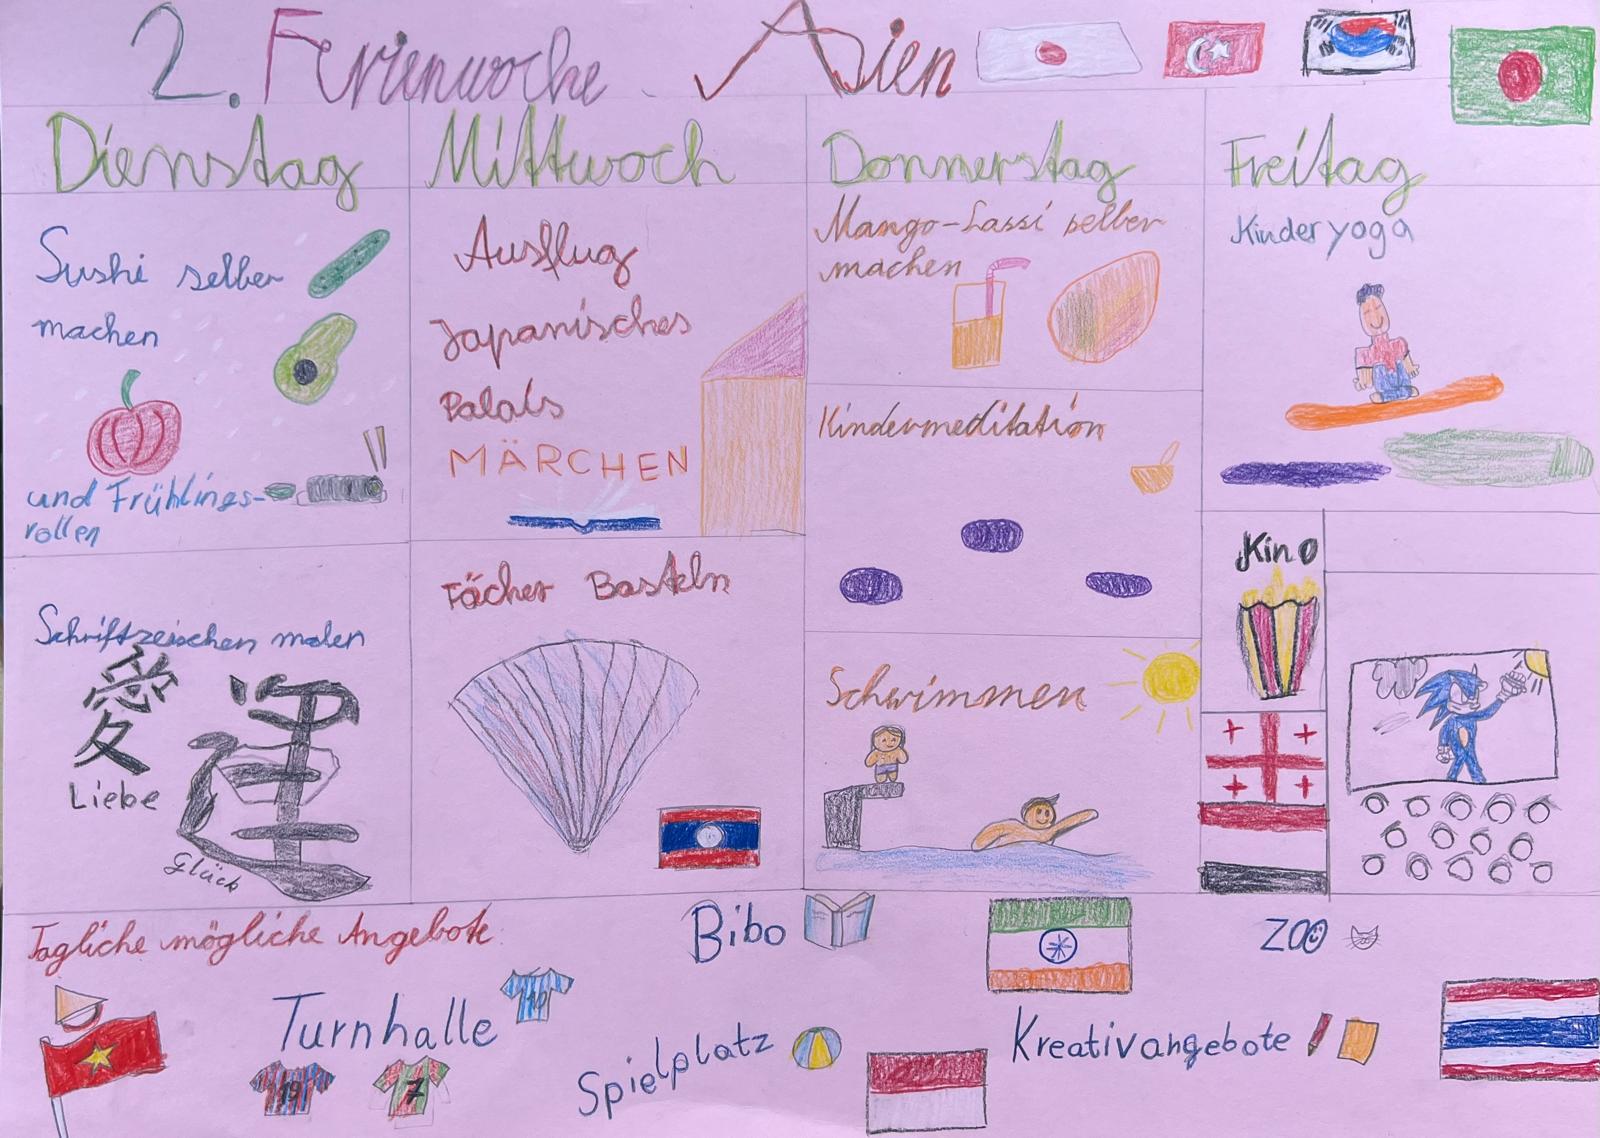 2. Ferienwoche Asien
Dienstag
Sushi selber
machen
und Frühlings-
rollen
Schriftzeischen malen
愛
運
Liebe
Glück
Mittwoch
Ausflug
Japanisches
Palais
MÄRCHEN
Fächer Basteln
Donnerstag
Mango-Lassi selber
machen
Kindermeditation
Schwimmen
Freitag
Kinderyoga
Kino
Tagliche mögliche Angebote:
Bibo
ZOO
Turnhalle
10
19
7
Spielplatz
Kreativangebote